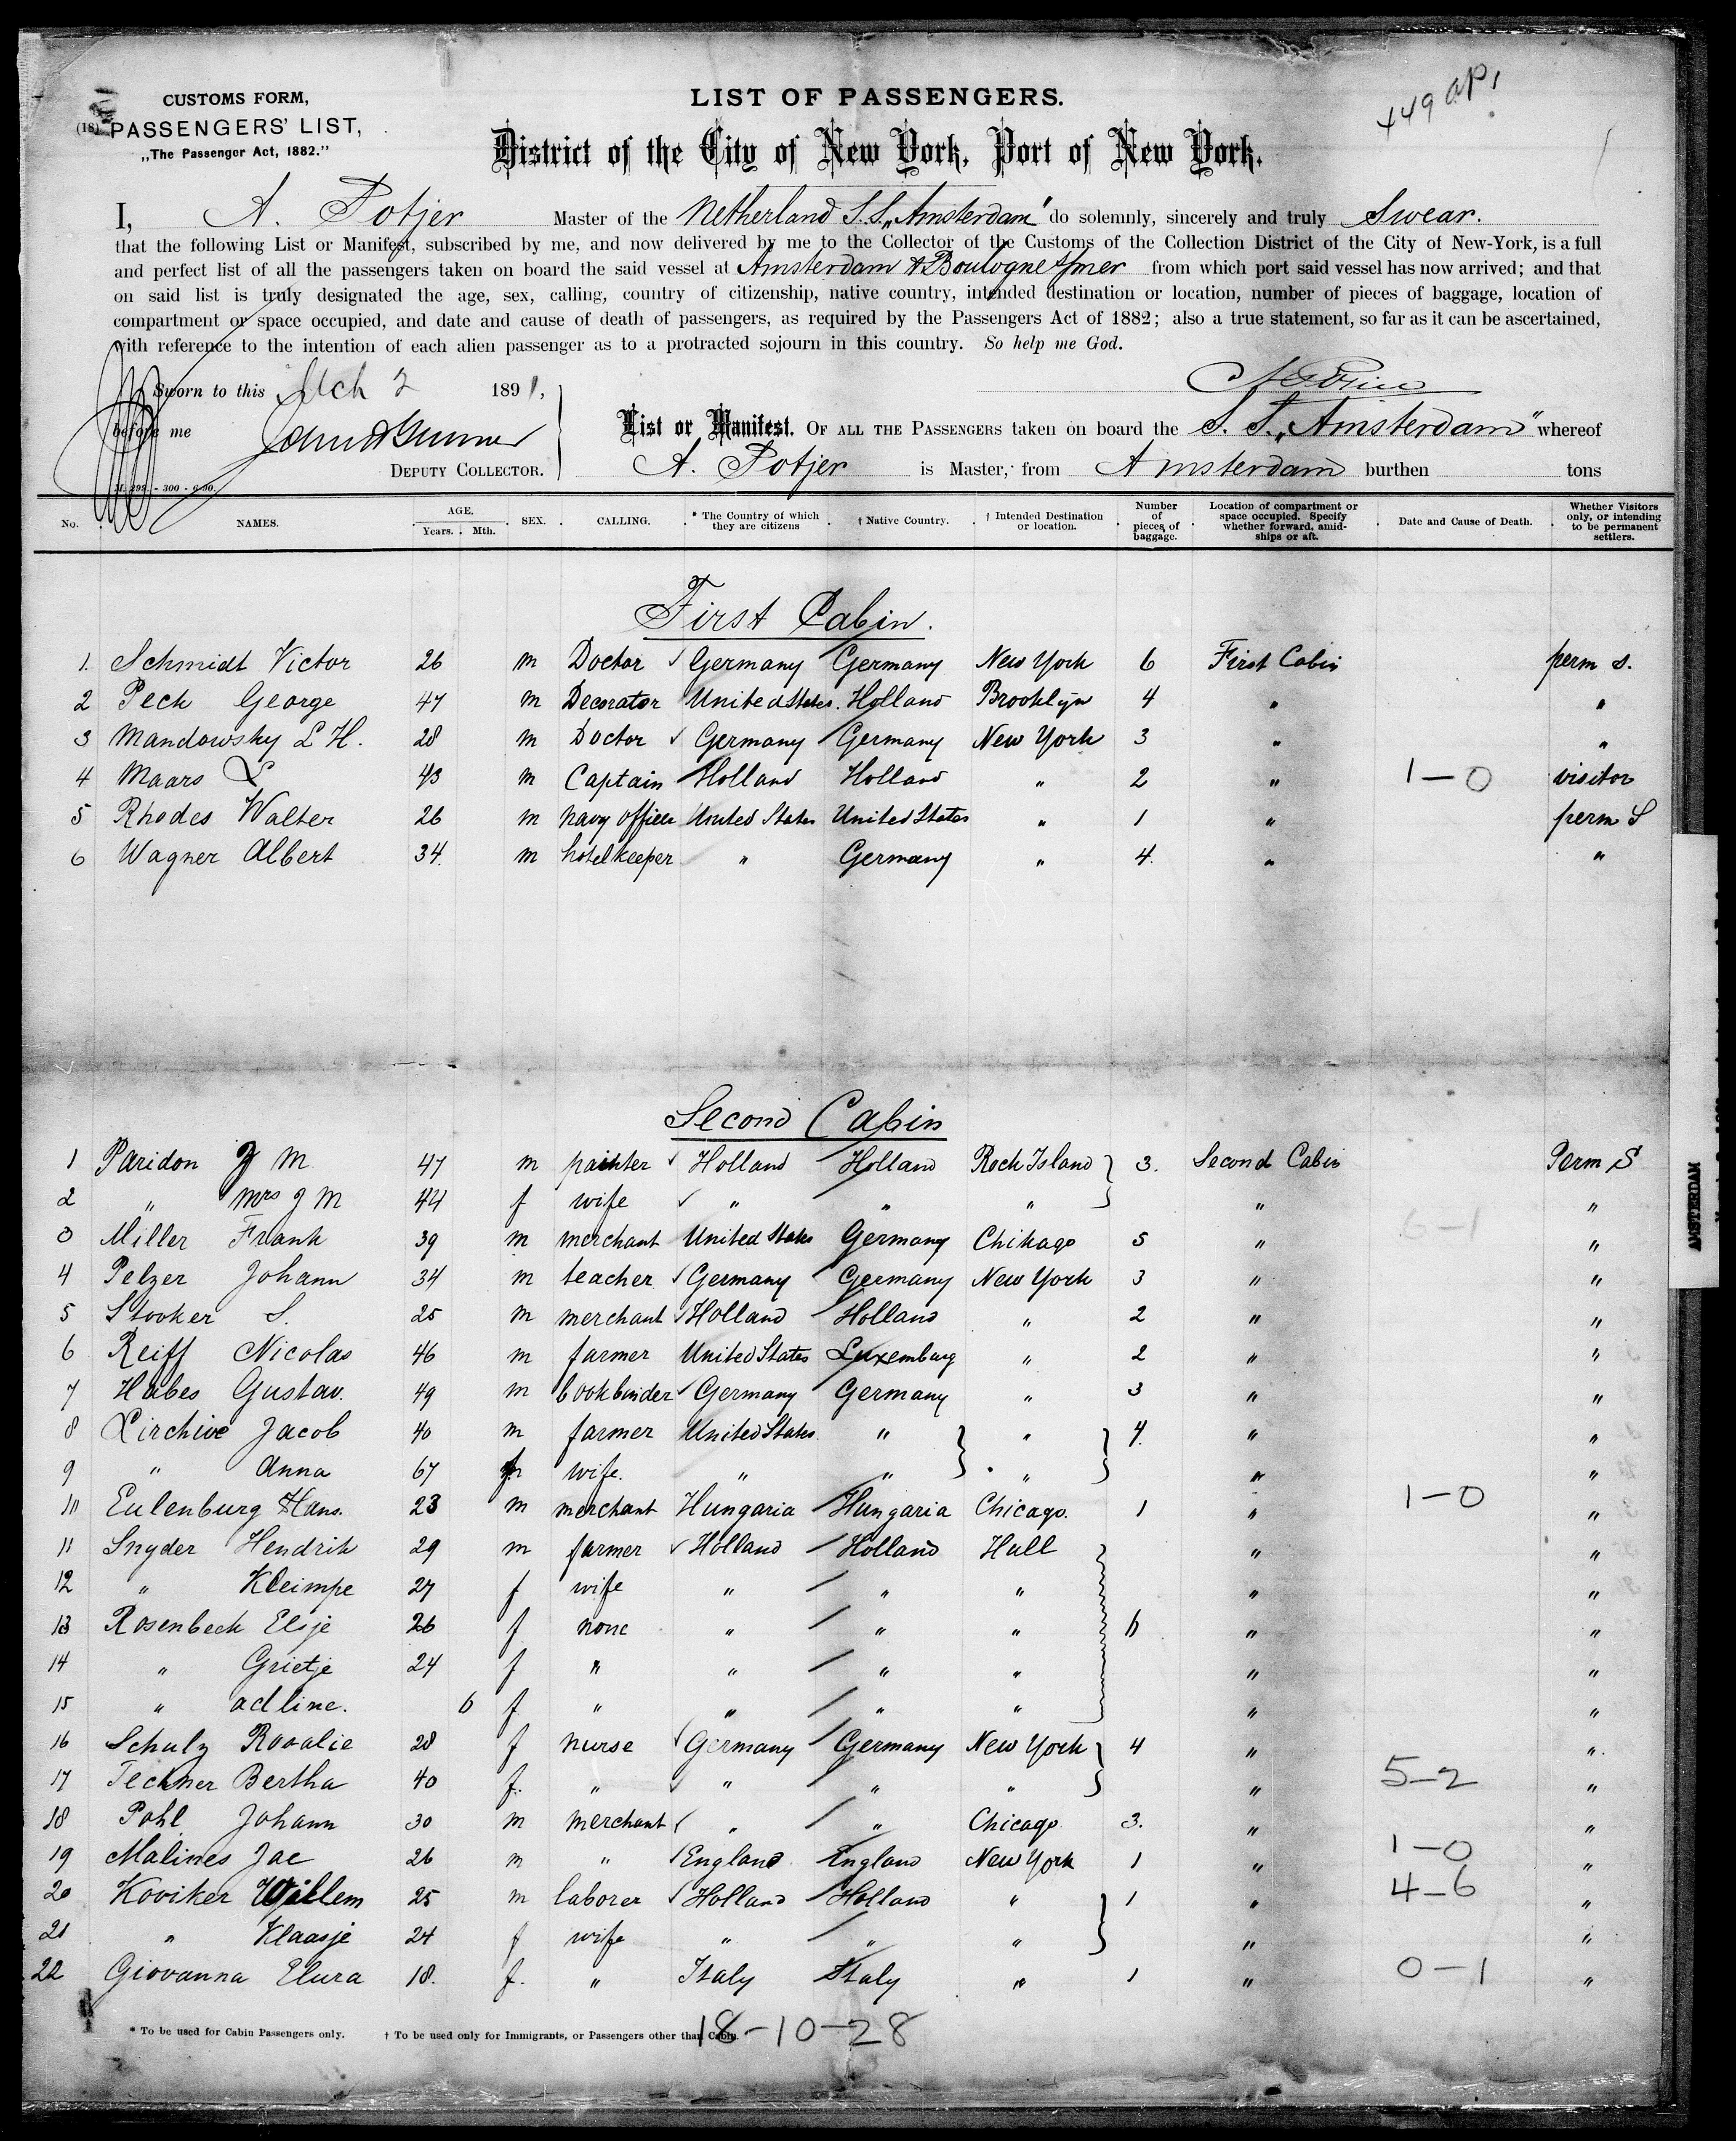 CUSTOMS FORM,
PASSENGERS' LIST,
„The Passenger Act, 1882."
LIST OF PASSENGERS.
449 ap1
District of the City of New York, Port of New York.
I, A. Potjer Master of the Netherland S.S. „Amsterdam" do solemnly, sincerely and truly Swear.
that the following List or Manifest, subscribed by me, and now delivered by me to the Collector of the Customs of the Collection District of the City of New-York, is a full
and perfect list of all the passengers taken on board the said vessel at Amsterdam & Boulogne s/mer from which port said vessel has now arrived; and that
on said list is truly designated the age, sex, calling, country of citizenship, native country, intended destination or location, number of pieces of baggage, location of
compartment or space occupied, and date and cause of death of passengers, as required by the Passengers Act of 1882; also a true statement, so far as it can be ascertained,
with reference to the intention of each alien passenger as to a protracted sojourn in this country. So help me God.
Sworn to this Mch 2 1891,
before me
DEPUTY COLLECTOR.
List or Manifest. OF ALL THE PASSENGERS taken on board the S. S. „Amsterdam" whereof
A. Potjer is Master, from Amsterdam burthen tons
No. NAMES. AGE. Years. Mth. SEX. CALLING. * The Country of which they are citizens † Native Country. † Intended Destination or location. Number of pieces of baggage. Location of compartment or space occupied. Specify whether forward, amidships or aft. Date and Cause of Death. Whether Visitors only, or intending to be permanent settlers.
First Cabin.
1. Schmidt Victor 26 m Doctor Germany Germany New York 6 First Cabin perm s.
2 Peck George 47 m Decorator United States. Holland Brooklyn 4 " "
3 Mandowsky L H. 28 m Doctor Germany Germany New York 3 " "
4 Maars L 43 m Captain Holland Holland " 2 " 1-0 visitor
5 Rhodes Walter 26 m navy officer United States United States " 1 " perm S
6 Wagner Albert 34. m hotelkeeper " Germany " 4. " "
Second Cabin
1 Paridon J M 47 m painter Holland Holland Rock Island 3. Second Cabin Perm S
2 " Mrs J M 44 f wife " " " " "
3 Miller Frank 39 m merchant United States Germany Chikago 5 " 6-1 "
4 Pelzer Johann 34 m teacher Germany Germany New York 3 " "
5 Stooker S. 25 m merchant Holland Holland " 2 " "
6 Reiff Nicolas 46 m farmer United States Luxemburg " 2 " "
7 Habes Gustav. 49 m bookbinder Germany Germany " 3 " "
8 Jacob 40 m farmer United States " " 4. " "
9 " Anna 67 f wife. " " " " "
10 Eulenburg Hans. 23 m merchant Hungaria Hungaria Chicago. 1 " 1-0 "
11 Snyder Hendrik 29 m farmer Holland Holland Hull " "
12 " Kleimpe 27 f wife " " " " "
13 Rosenbeck Elsje 26 f none " " " 6 " "
14 " Grietje 24 f " " " " " "
15 " adline. 6 f " " " " " "
16 Schulz Rosalie 28 f nurse Germany Germany New York 4 " "
17 Techner Bertha 40 f. " " " " " 5-2 "
18 Pohl Johann 30 m merchant " " Chicago 3. " "
19 Malines Jac 26 m " England England New York 1 " 1-0 "
20 Koviker Willem 25 m laborer Holland Holland " 1 " 4-6 "
21 " Klaasje 24 f wife " " " " "
22 Giovanna Elura 18. f. " Italy Italy " 1 " 0-1 "
* To be used for Cabin Passengers only. † To be used only for Immigrants, or Passengers other than Cabin.
18-10-28
AMSTERDAM